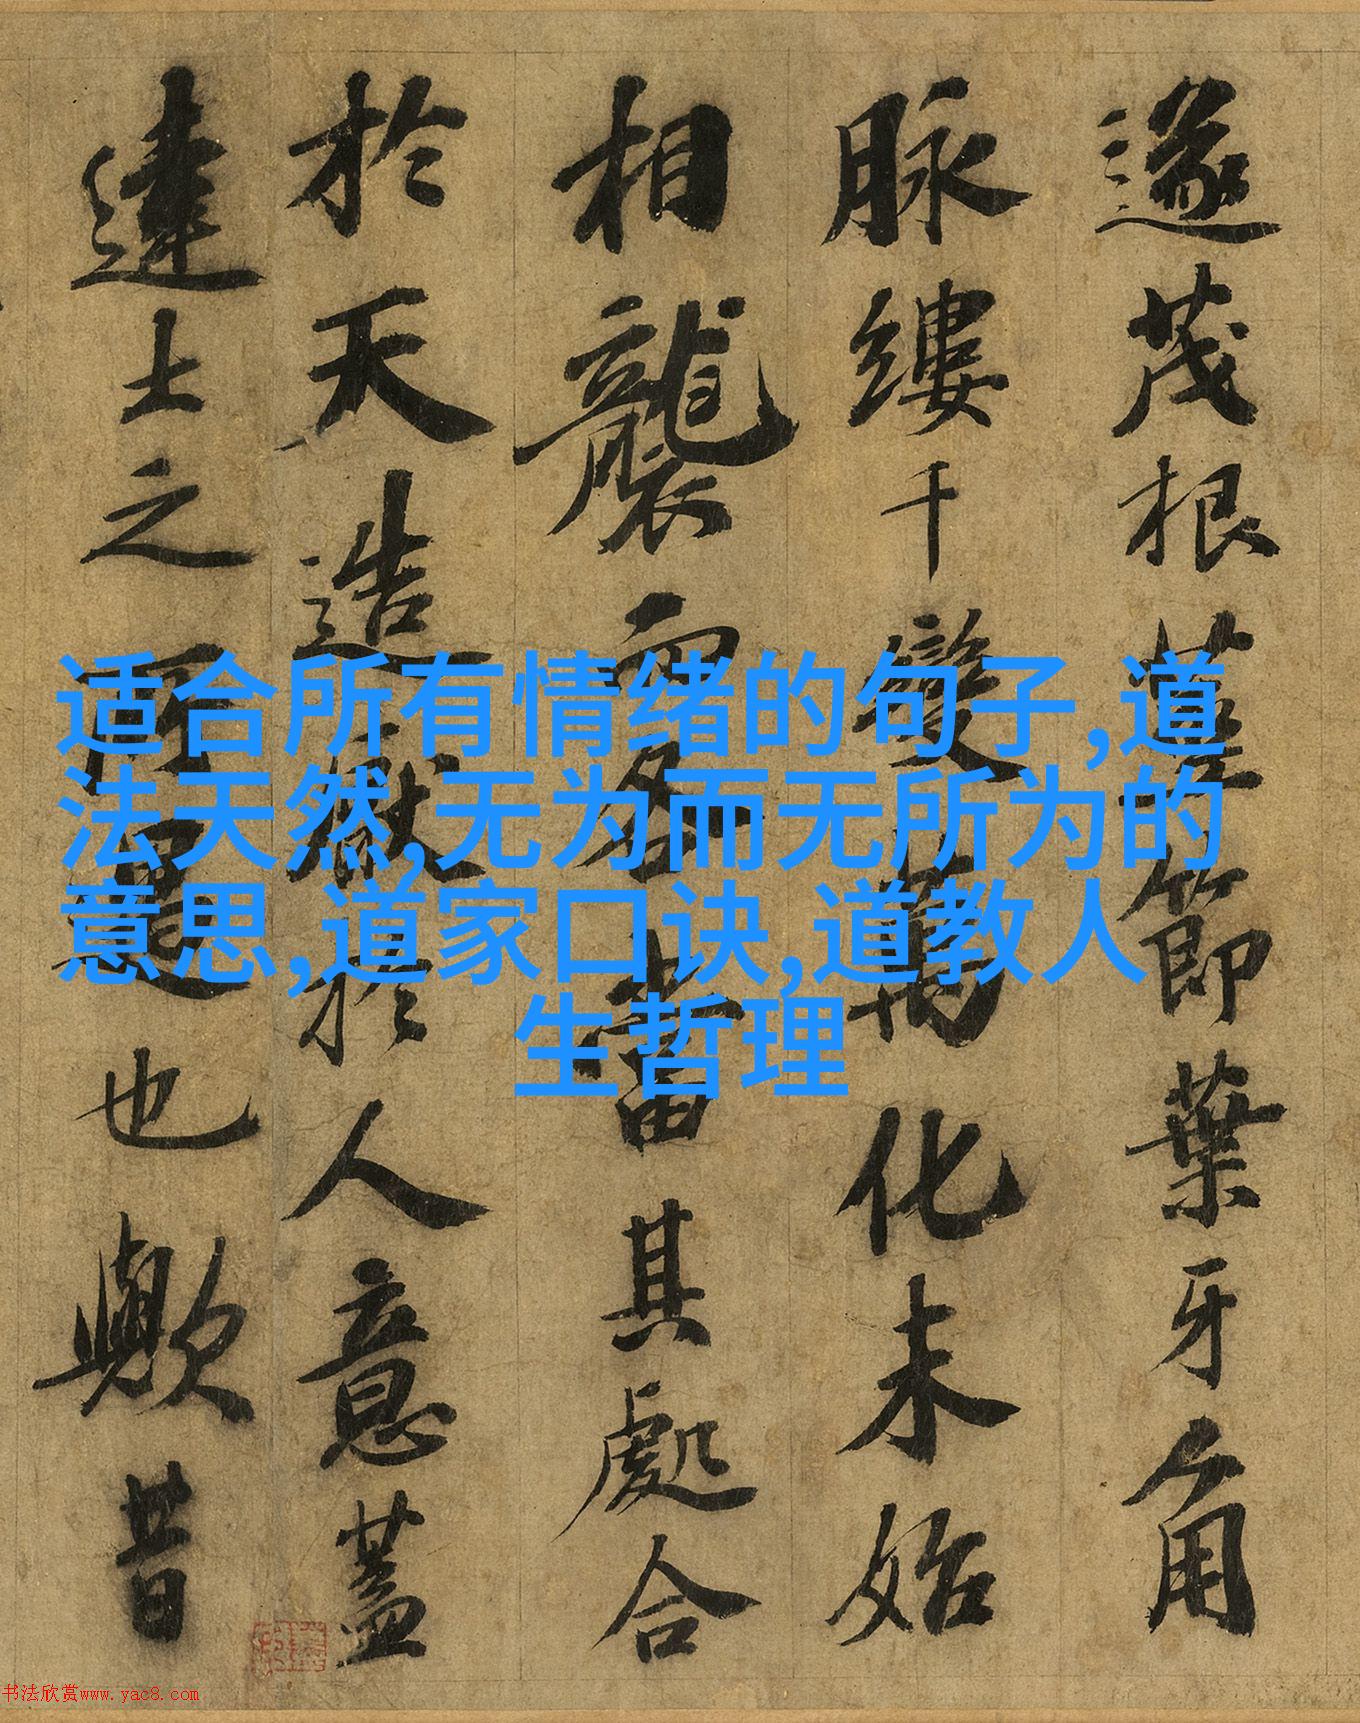 遂茂根莖節葉牙角
脉縷千變萬化未始
相襲而各當其處合
於天造猒於人意蓋
達士之所寓也歟昔
适合所有情绪的句子,道
法天然,无为而无所为的
意思,道家口诀,道教人
生哲理
书法欣赏www.yac8.com